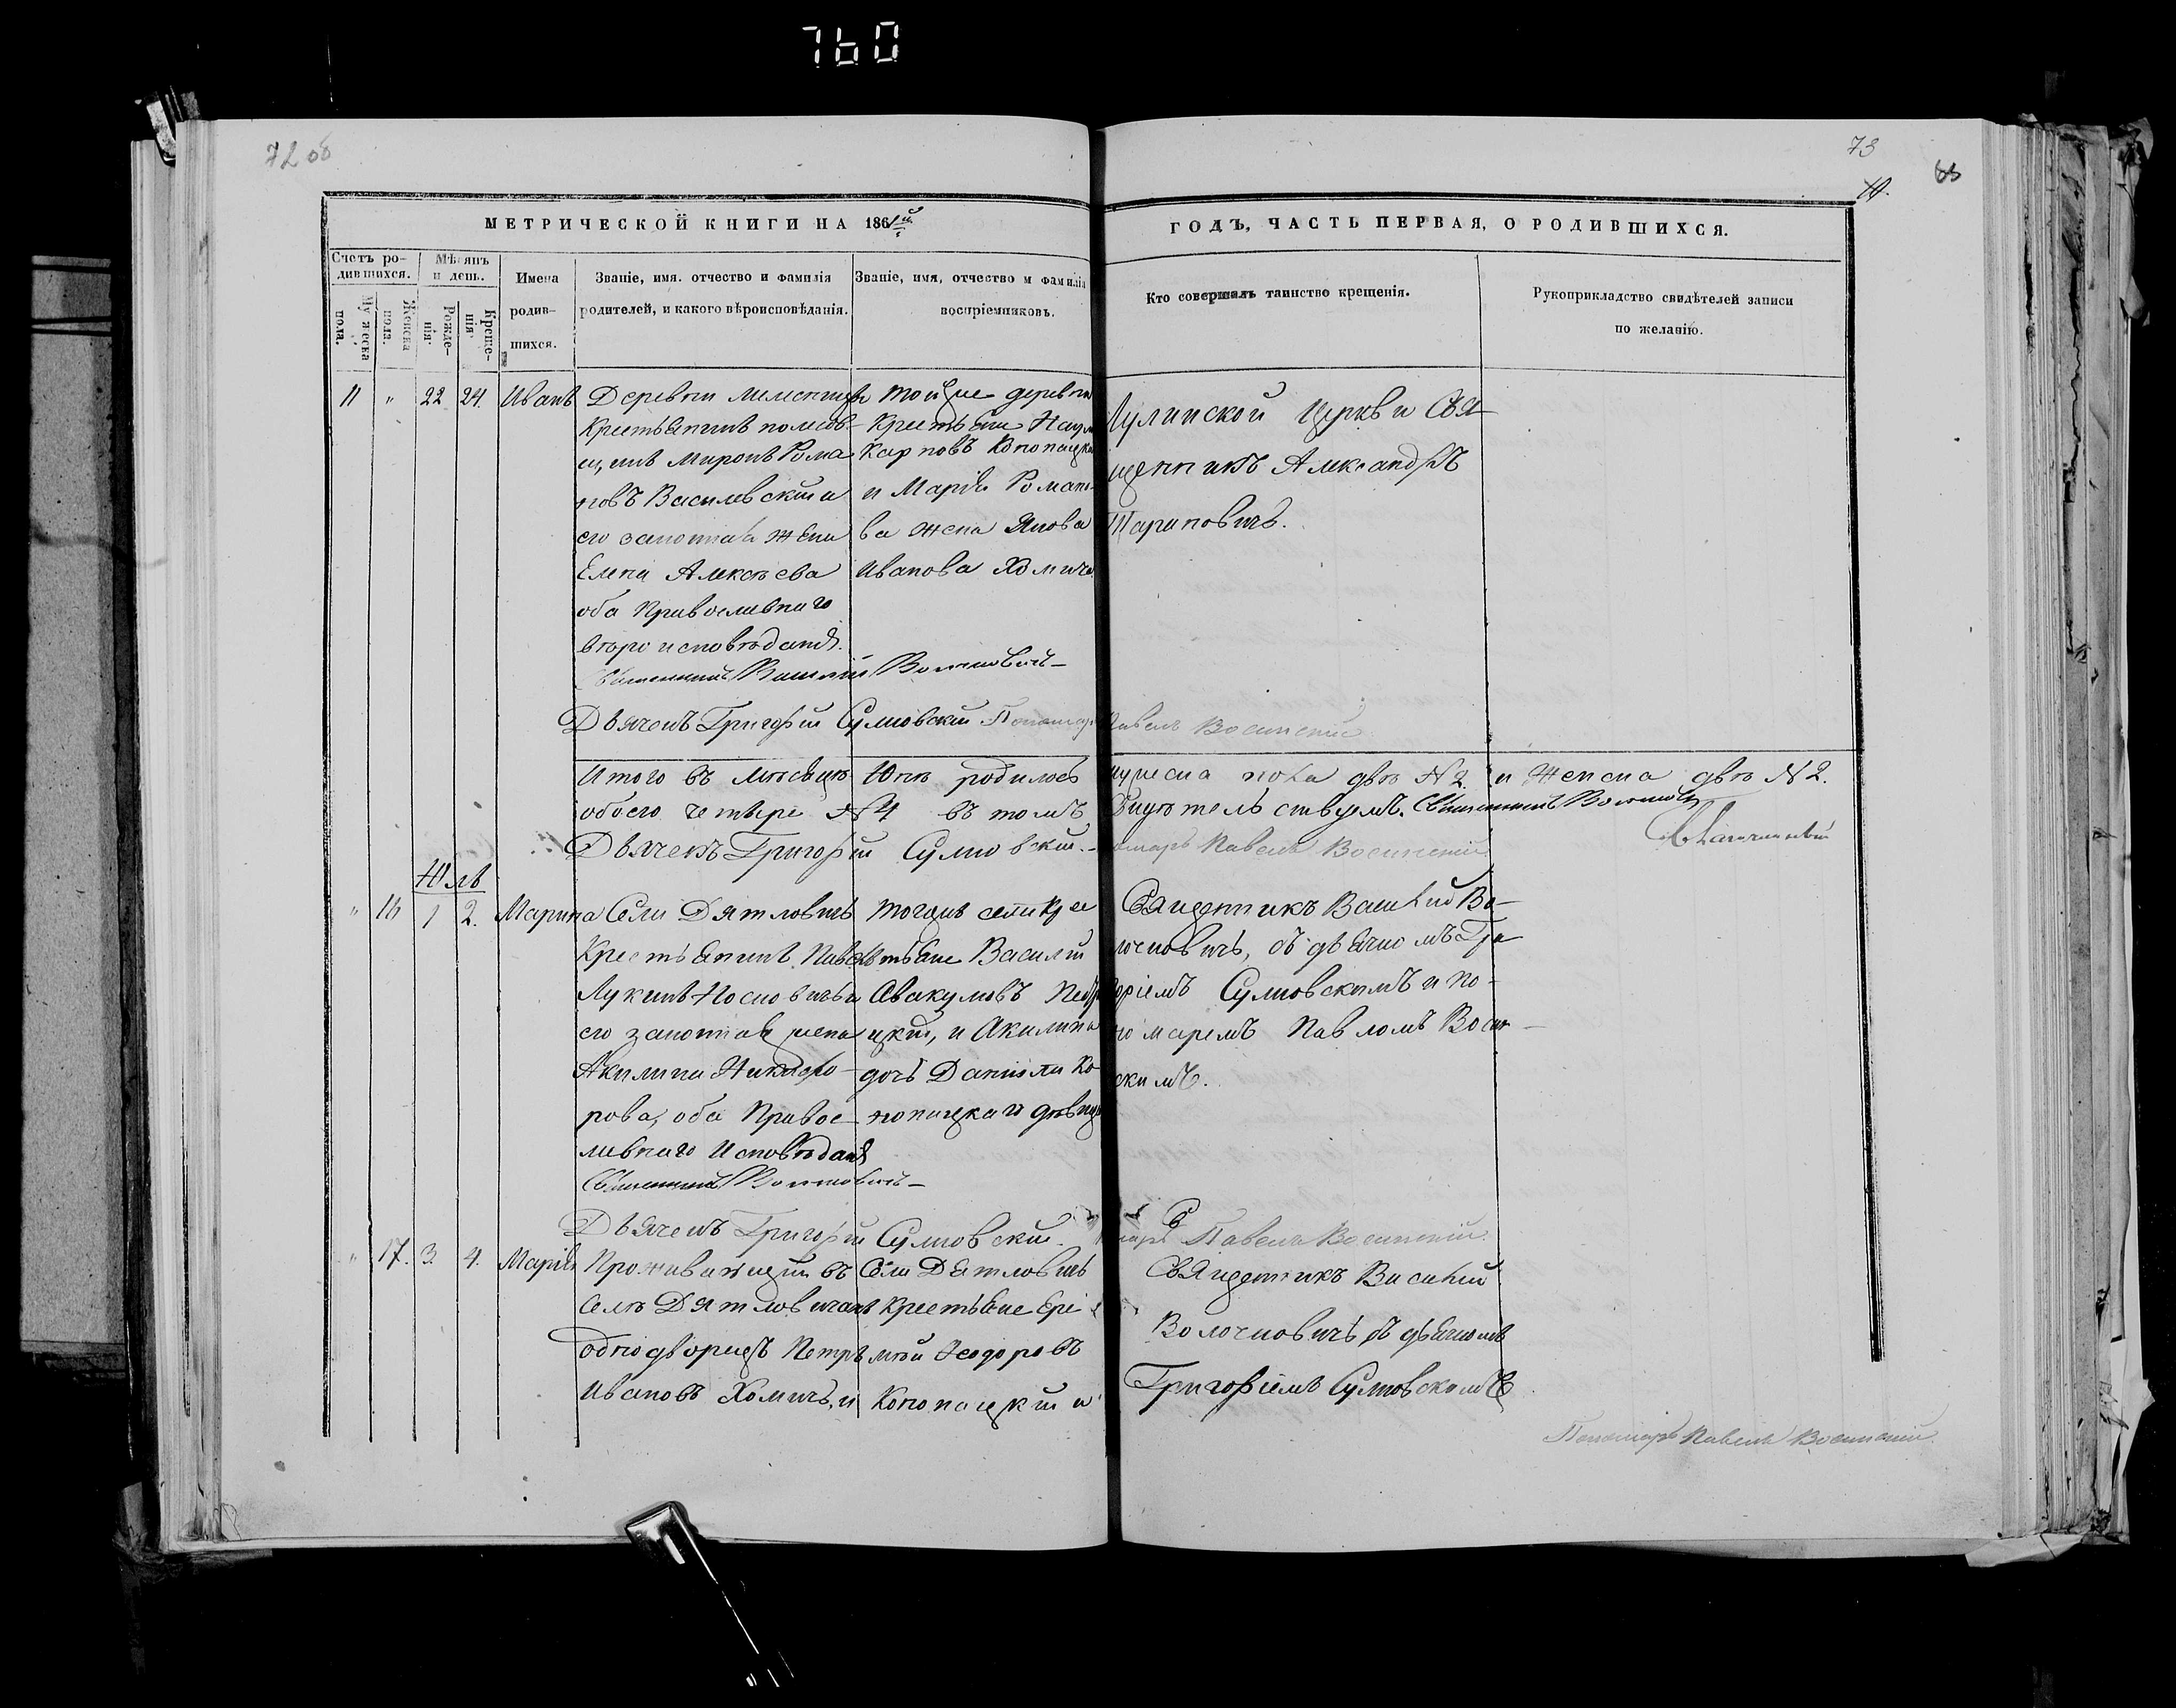 760
72 об
73
МЕТРИЧЕСКОЙ КНИГИ НА 1861й
ГОДЪ, ЧАСТЬ ПЕРВАЯ, О РОДИВШИХСЯ.
Счетъ ро-
дившихся.
Мѣсяцъ
и день.
Мужеска
пола.
Женска
пола.
Рожде-
нія.
Креще-
нія.
Имена
родив-
шихся.
Званіе, имя, отчество и фамилія
родителей, и какого вѣроисповѣданія.
Званіе, имя, отчество и фамилія
воспріемниковъ.
Кто совершалъ таинство крещенія.
Рукоприкладство свидѣтелей записи
по желанію.
11 " 22 24. Иванъ
Деревни
крестьянинъ помѣ-
щикъ Миронъ Рома
новъ Василевскій и
его законная жена
Елена Алексѣева
оба православнаго
вѣроисповѣданія.
тойже деревни
крестьяне Наумъ
Карповъ Конопацкій
и Марія Романо-
ва жена Якова
Иванова Хомича
Лулинской Церкви Свя-
щенникъ Александръ
Тариновичъ.
Священникъ Василій Волочковичъ
Дьячекъ Григорій Сулковскій Пономарь Павелъ Воситскій
Итого въ мѣсяцѣ Юнѣ родилось мужеска пола двѣ №2. и женска двѣ №2.
обоего четыре №4 въ томъ свидѣтельствуемъ. Священникъ Волочковичъ
Дьячекъ Григорій Сулковскій. Пономарь Павелъ Воситскій
Юль
" 16 1 2. Марина
Села Дятловичъ
крестьянинъ Павелъ
Лукинъ Носковичъ и
его законная жена
Акилина Никифо-
рова, оба право-
славнаго исповѣданія
тогожъ села кре
стьяне Василій
Авакумовъ
цкій, и Акилина
дочь Даніила Ко-
нопацкаго дѣвица
Священникъ Василій Во-
лочковичъ, съ дьячкомъ Гри
горіемъ Сулковскимъ и по-
номаремъ Павломъ Восит-
скимъ.
Священникъ Волочковичъ
Дьячекъ Григорій Сулковскій. Пономарь Павелъ Воситскій.
" 17. 3. 4. Марія
Проживающій въ
селѣ Дятловичахъ
однодворецъ Петръ
Ивановъ Хомичъ, и
Села Дятловичъ
крестьяне Ере
мѣй Ѳеодоровъ
Конопацкій и
Священникъ Василій
Волочковичъ съ дьячкомъ
Григоріемъ Сулковскимъ
Пономарь Павелъ Воситскій.